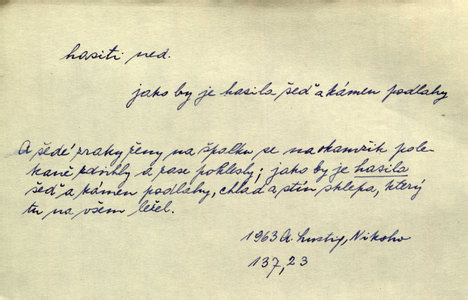 hasiti ned.
jako by je hasila šeď a kámen podlahy
A šedé zraky ženy na špalku se na okamžik pole-
kaně zdvihly a zase poklesly; jako by je hasila
šeď a kámen podlahy, chlad a stín sklepa, který
tu na všem ležel.
1963 A. Lustig, Nikoho
137,23